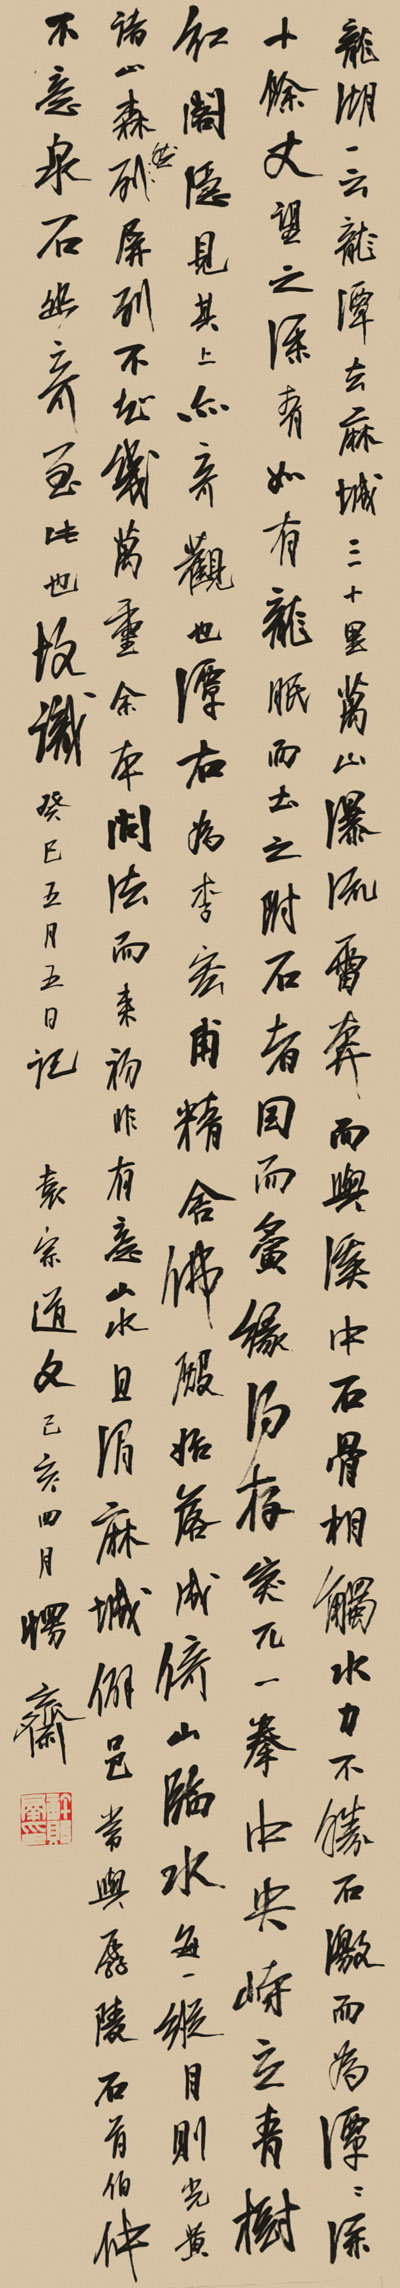 龍湖一云龍潭去麻城三十里萬山瀑流雷奔而與溪中石骨相觸水力不勝石激而為潭〻深
十餘丈望之深青如有龍眠而土之附石者因而夤緣得存突兀一拳中央峙立青樹
紅閣隱見其上亦奇觀也潭右為李宏甫精舍佛殿始落成倚山臨水每一縱目則光黃
諸山森列然屏列不知幾萬重余本問法而來初非有意山水且謂麻城僻邑當與孱陵石首伯仲
不意泉石幽奇至此也故識癸巳五月五日記 袁宗道文己亥四月愣齋